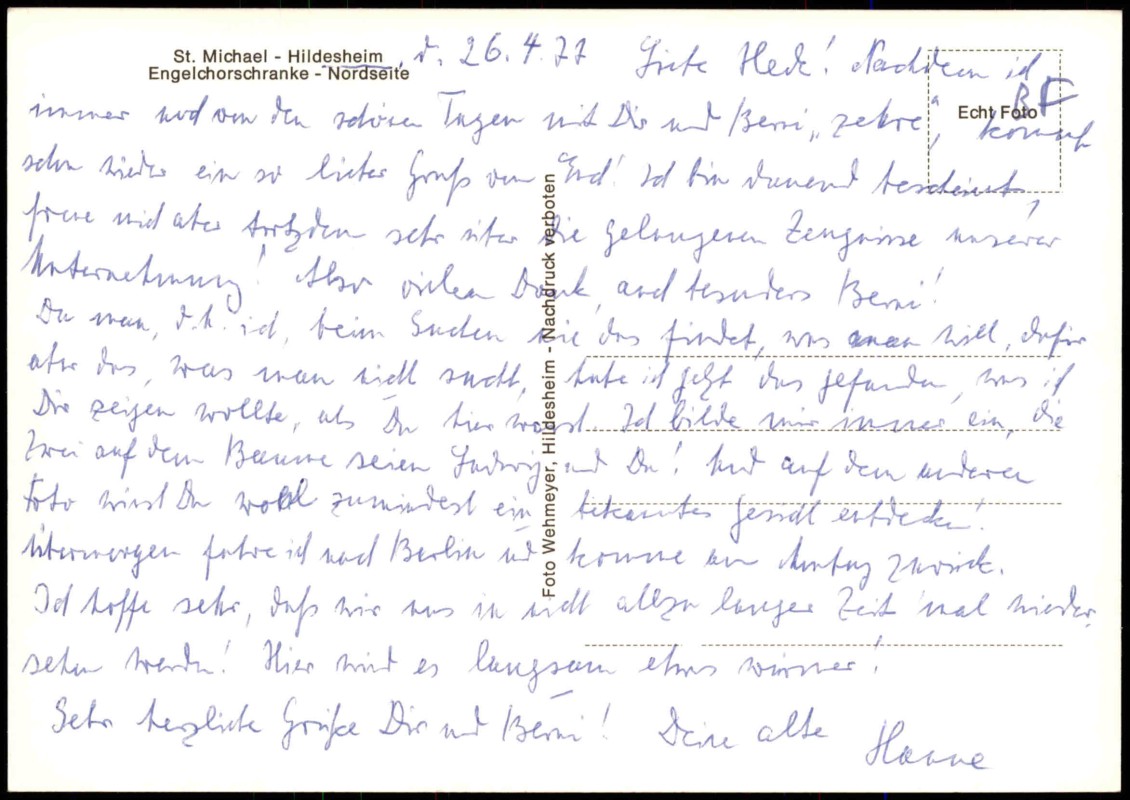 St. Michael - Hildesheim, d. 26.4.77 Gute Hede! Nachdem ich
Engelchorschranke - Nordseite
Echt Foto
immer noch von den schönen Tagen mit Dir und Berni „zehre“, kommt
schon wieder ein so lieber Gruß von Euch! Ich bin dauernd beschämt,
freue mich aber trotzdem sehr über die gelungenen Zeugnisse unserer
Unternehmung! Also vielen Dank, auch besonders Berni!
Da man, d.h. ich, beim Suchen nie das findet, was man will, dafür
aber das, was man nicht sucht, habe ich jetzt das gefunden, was ich
Dir zeigen wollte, als Du hier warst. Ich bilde mir immer ein, die
Zwei auf dem Baume seien Ludwig und Du! Und auf dem anderen
Foto wirst Du wohl zumindest ein bekanntes Gesicht entdecken!
Übermorgen fahre ich nach Berlin und komme am Montag zurück.
Ich hoffe sehr, daß wir uns in nicht allzu langer Zeit 'mal wieder
sehen werden! Hier wird es langsam etwas wärmer!
Sehr herzliche Grüße Dir und Berni! Deine alte Hanne
Foto Wehmeyer, Hildesheim - Nachdruck verboten